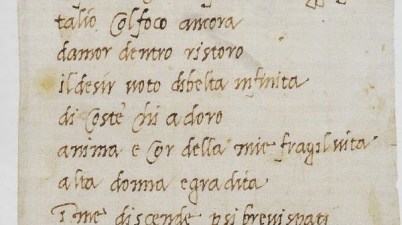 talio col foco ancora
damor dentro ristoro
il desir voto dibelta infinita
di coste chi adoro
anima e cor della mie fragil vita
alta donna e gradita
in me discende psi brevi spati